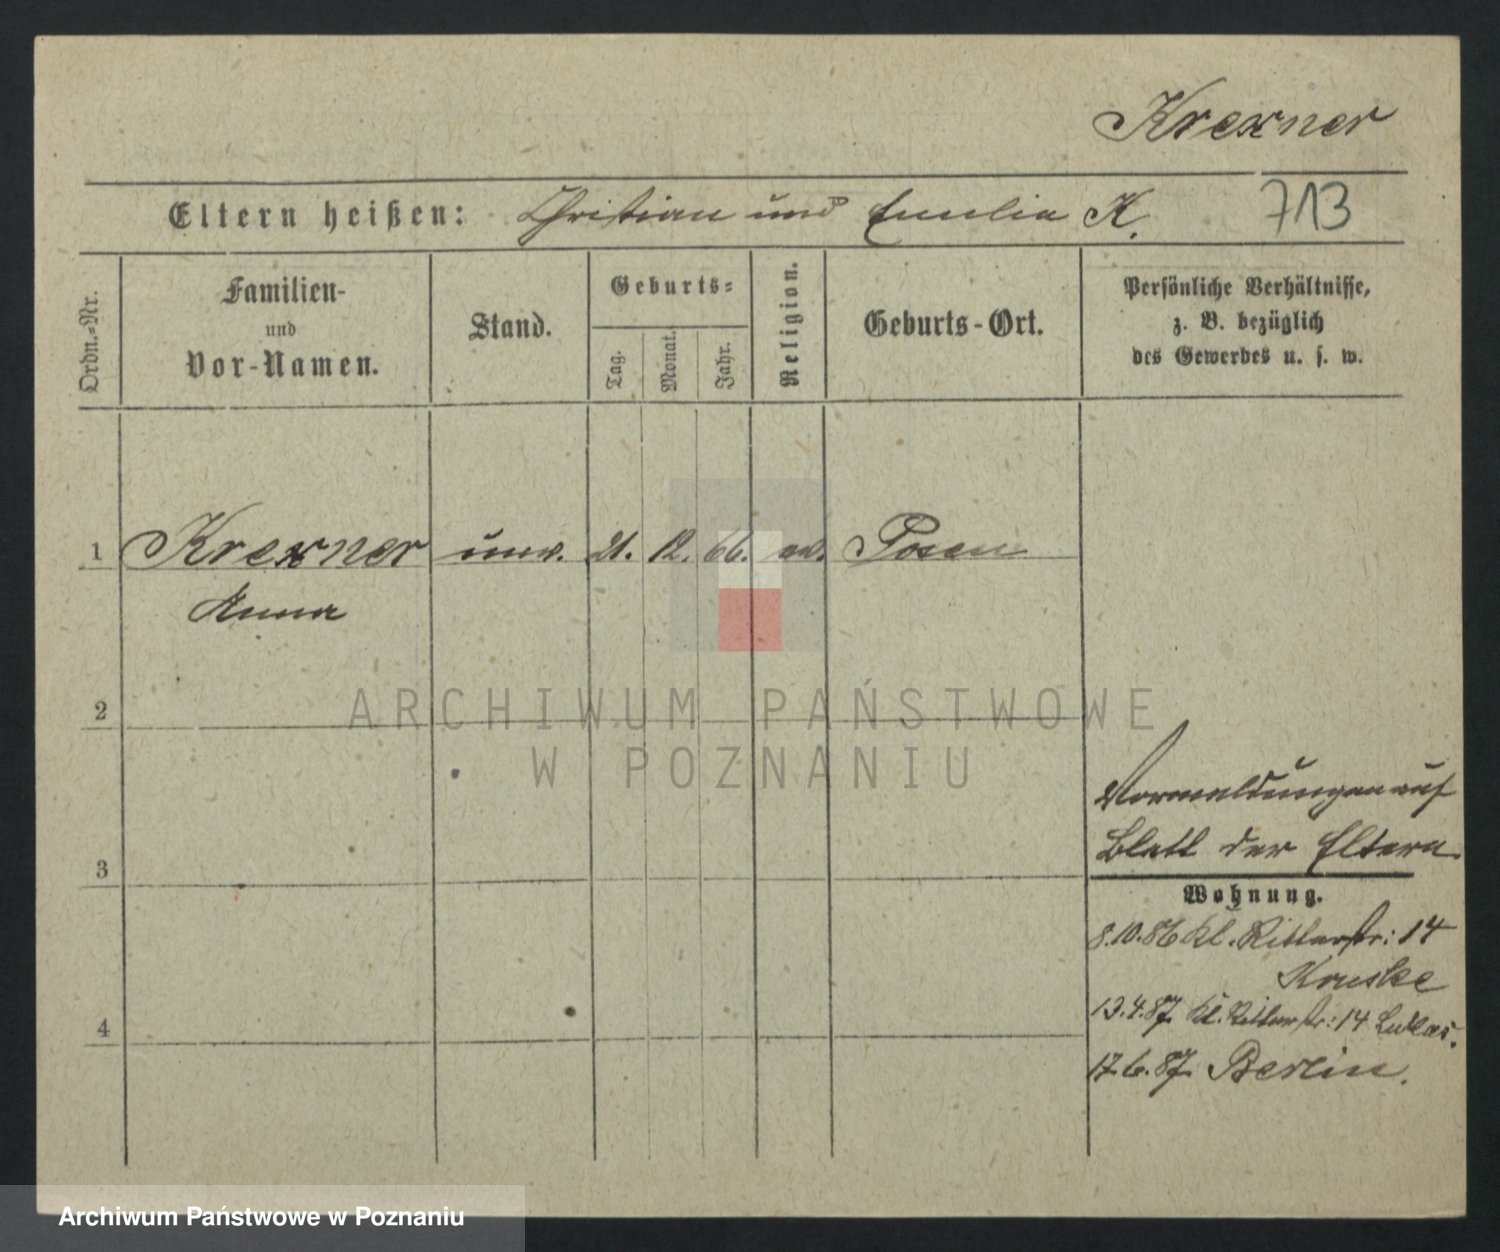 Krexner
Eltern heißen: Christian und Emilia K.
713
Ordn.-Nr.
Familien-
und
Vor-Namen.
Stand.
Geburts-
Tag.
Monat.
Jahr.
Religion.
Geburts-Ort.
Persönliche Verhältnisse,
z. B. bezüglich
des Gewerbes u. s. w.
1 Krexner unv. 21. 12. 66. ev. Posen
Anna
2
ARCHIWUM PAŃSTWOWE
W POZNANIU
Vormeldungen auf
Blatt der Eltern.
3
Wohnung.
8.10.86 Kl. Ritterstr: 14
Kruske
13.4.87. Kl. Ritterstr: 14 Lukas.
4
17.6.87. Berlin.
Archiwum Państwowe w Poznaniu